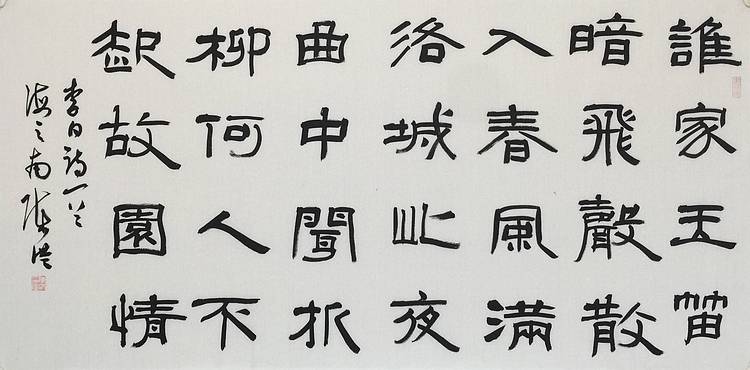 誰家玉笛
暗飛聲散
入春風滿
洛城此夜
曲中聞折
柳何人不
起故園情
李白詩一首
海之南